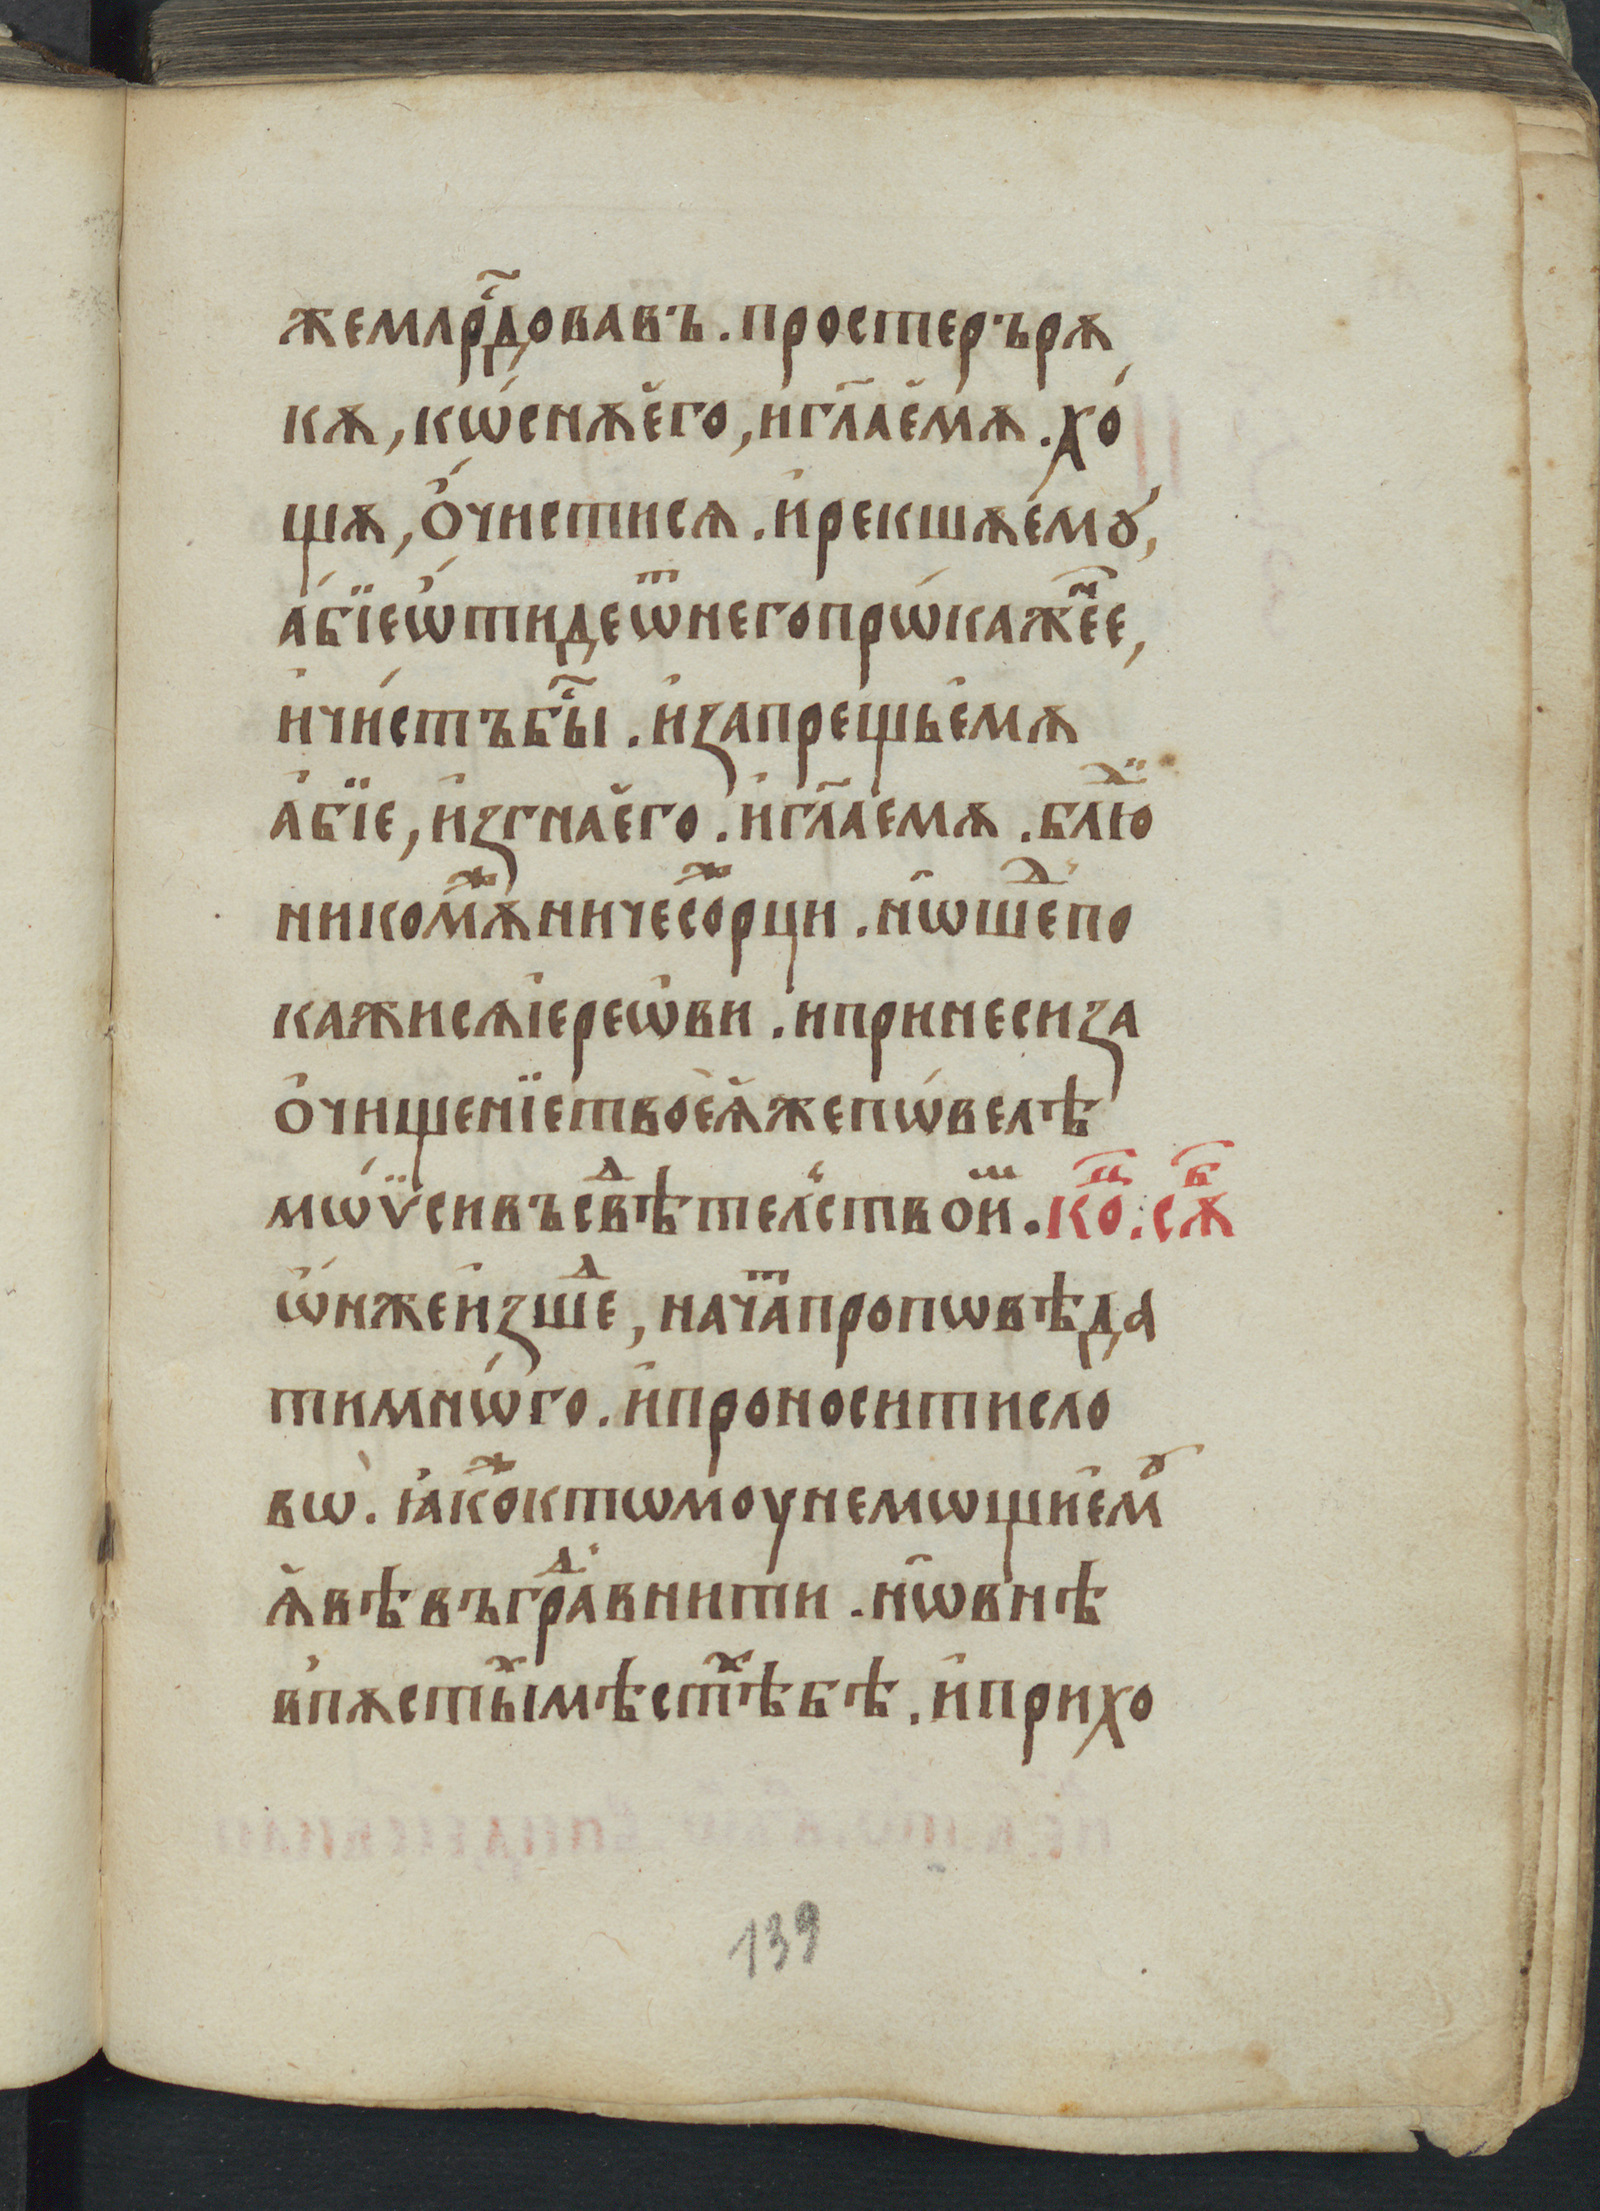 жемлрⷭ҇довавъ . простеръ рѫ
кѫ, кѡ́снѫ е҆го, и гл҃а е҆мѫ . хо́
щѫ, ѻ҆́чистисѧ . и҆ рекшѫ є҆мꙋ,
а҆́бїе ѡ҆́тиде ѿ него прѡ́кажеⷩ҇е,
и҆ чи́стъ быⷭ҇ . и҆ запрещь є҆мѫ
а҆бїе, и҆згна е҆го . и҆ гл҃а е҆мѫ . блюⷣ
никомѫⷤ ничесоⷤ рци . нѡ҆ шеⷣ по
кажисѧ і҆ерео҆ви . и принеси за
ѻ҆чищенїе твоѐ ꙗ҆же пѡ́велѣ
мѡѷси въ свⷣѣтелⷭ҇тво иⷨ . коⷰ . сѫⷠ
ѡ҆́нже и҆зшеⷣ, начаⷮ пропѡвѣда
ти мнѡ́го . и҆ проносити сло
вѡ̀ . ꙗ҆коⷤ ктѡмоу не мѡщи є҆мꙋ
ꙗ҆вѣ въ граⷣ внити . нѡ҆ внѣ
в пѫстыⷯ мѣстѣⷯ бѣ . и҆ прихо
139